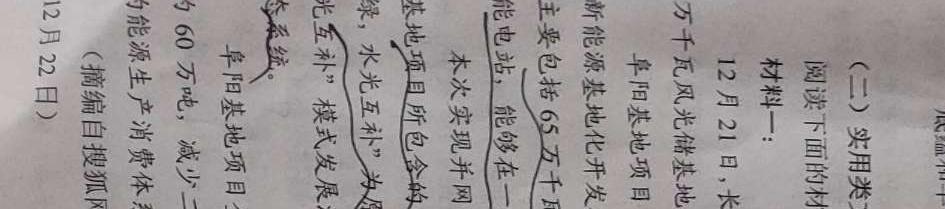 （二）实用类
阅读下面的材
材料一：
12月21日，长
万千瓦风光储基地
阜阳基地项目
新能源基地化开发
主要包括65万千瓦
能电站，能够在一
本次实现并网
基地项目所包含的
绿，水光互补”为
光互补”模式发展
态系统。
阜阳基地项目
约60万吨，减少二
的能源生产消费体系
（摘编自搜狐网
12月22日）